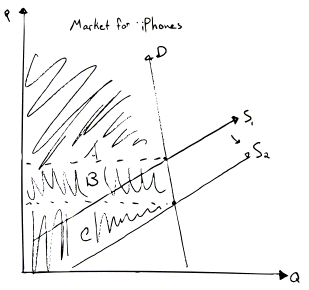 Market for iPhones
P
D
S₁
S₂
1
B
C
Q